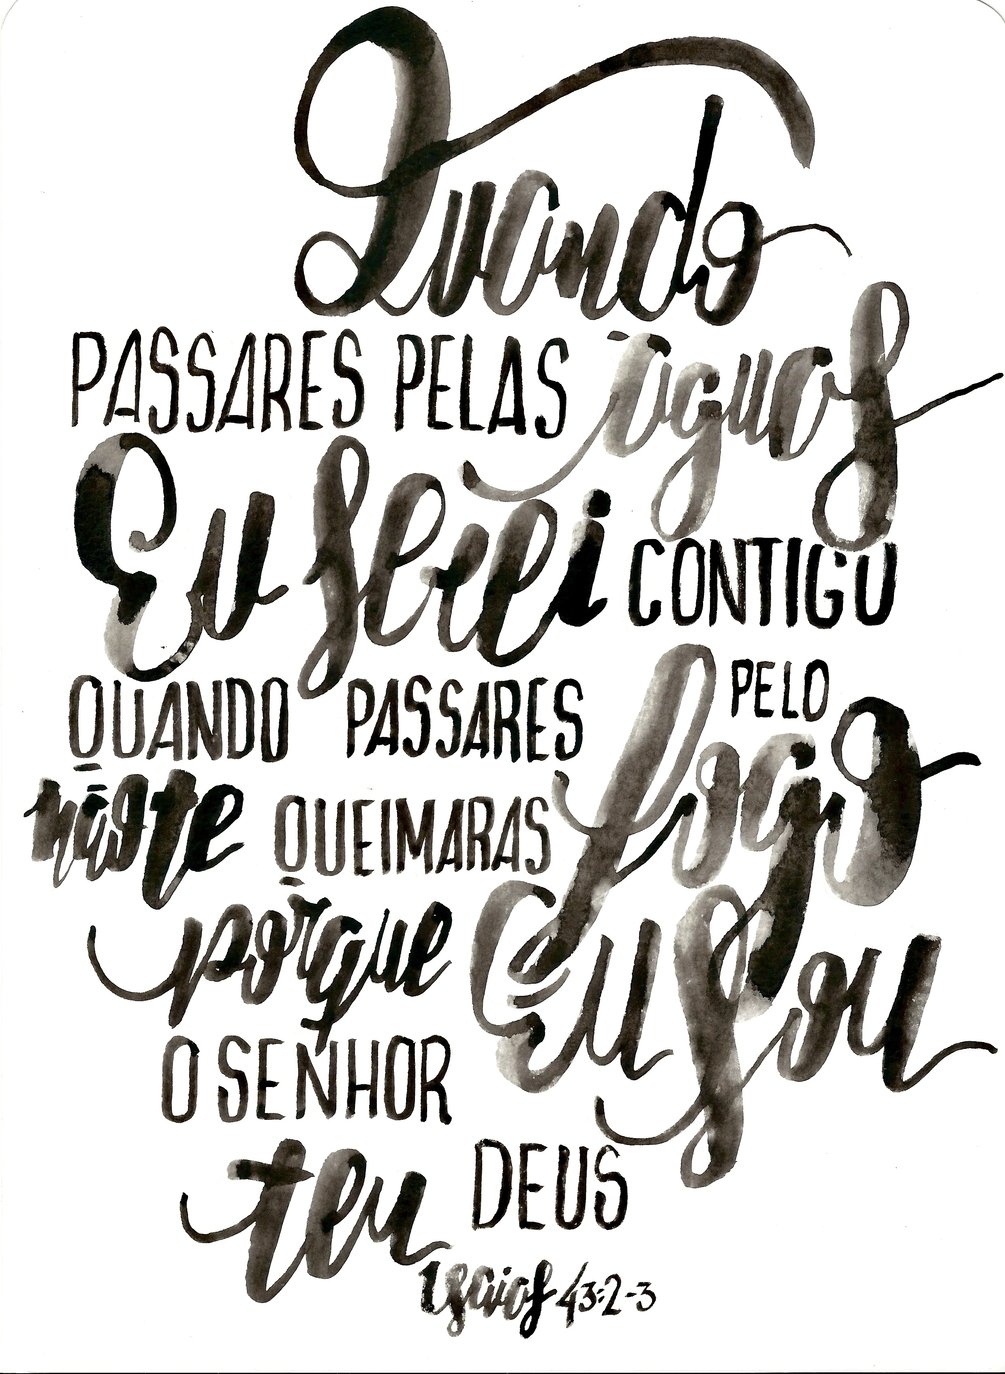 Quando
PASSARES PELAS águas
Eu serei CONTIGO
QUANDO PASSARES PELO fogo
não te QUEIMARAS
porque Eu sou
O SENHOR
teu DEUS
Isaias 43:2-3